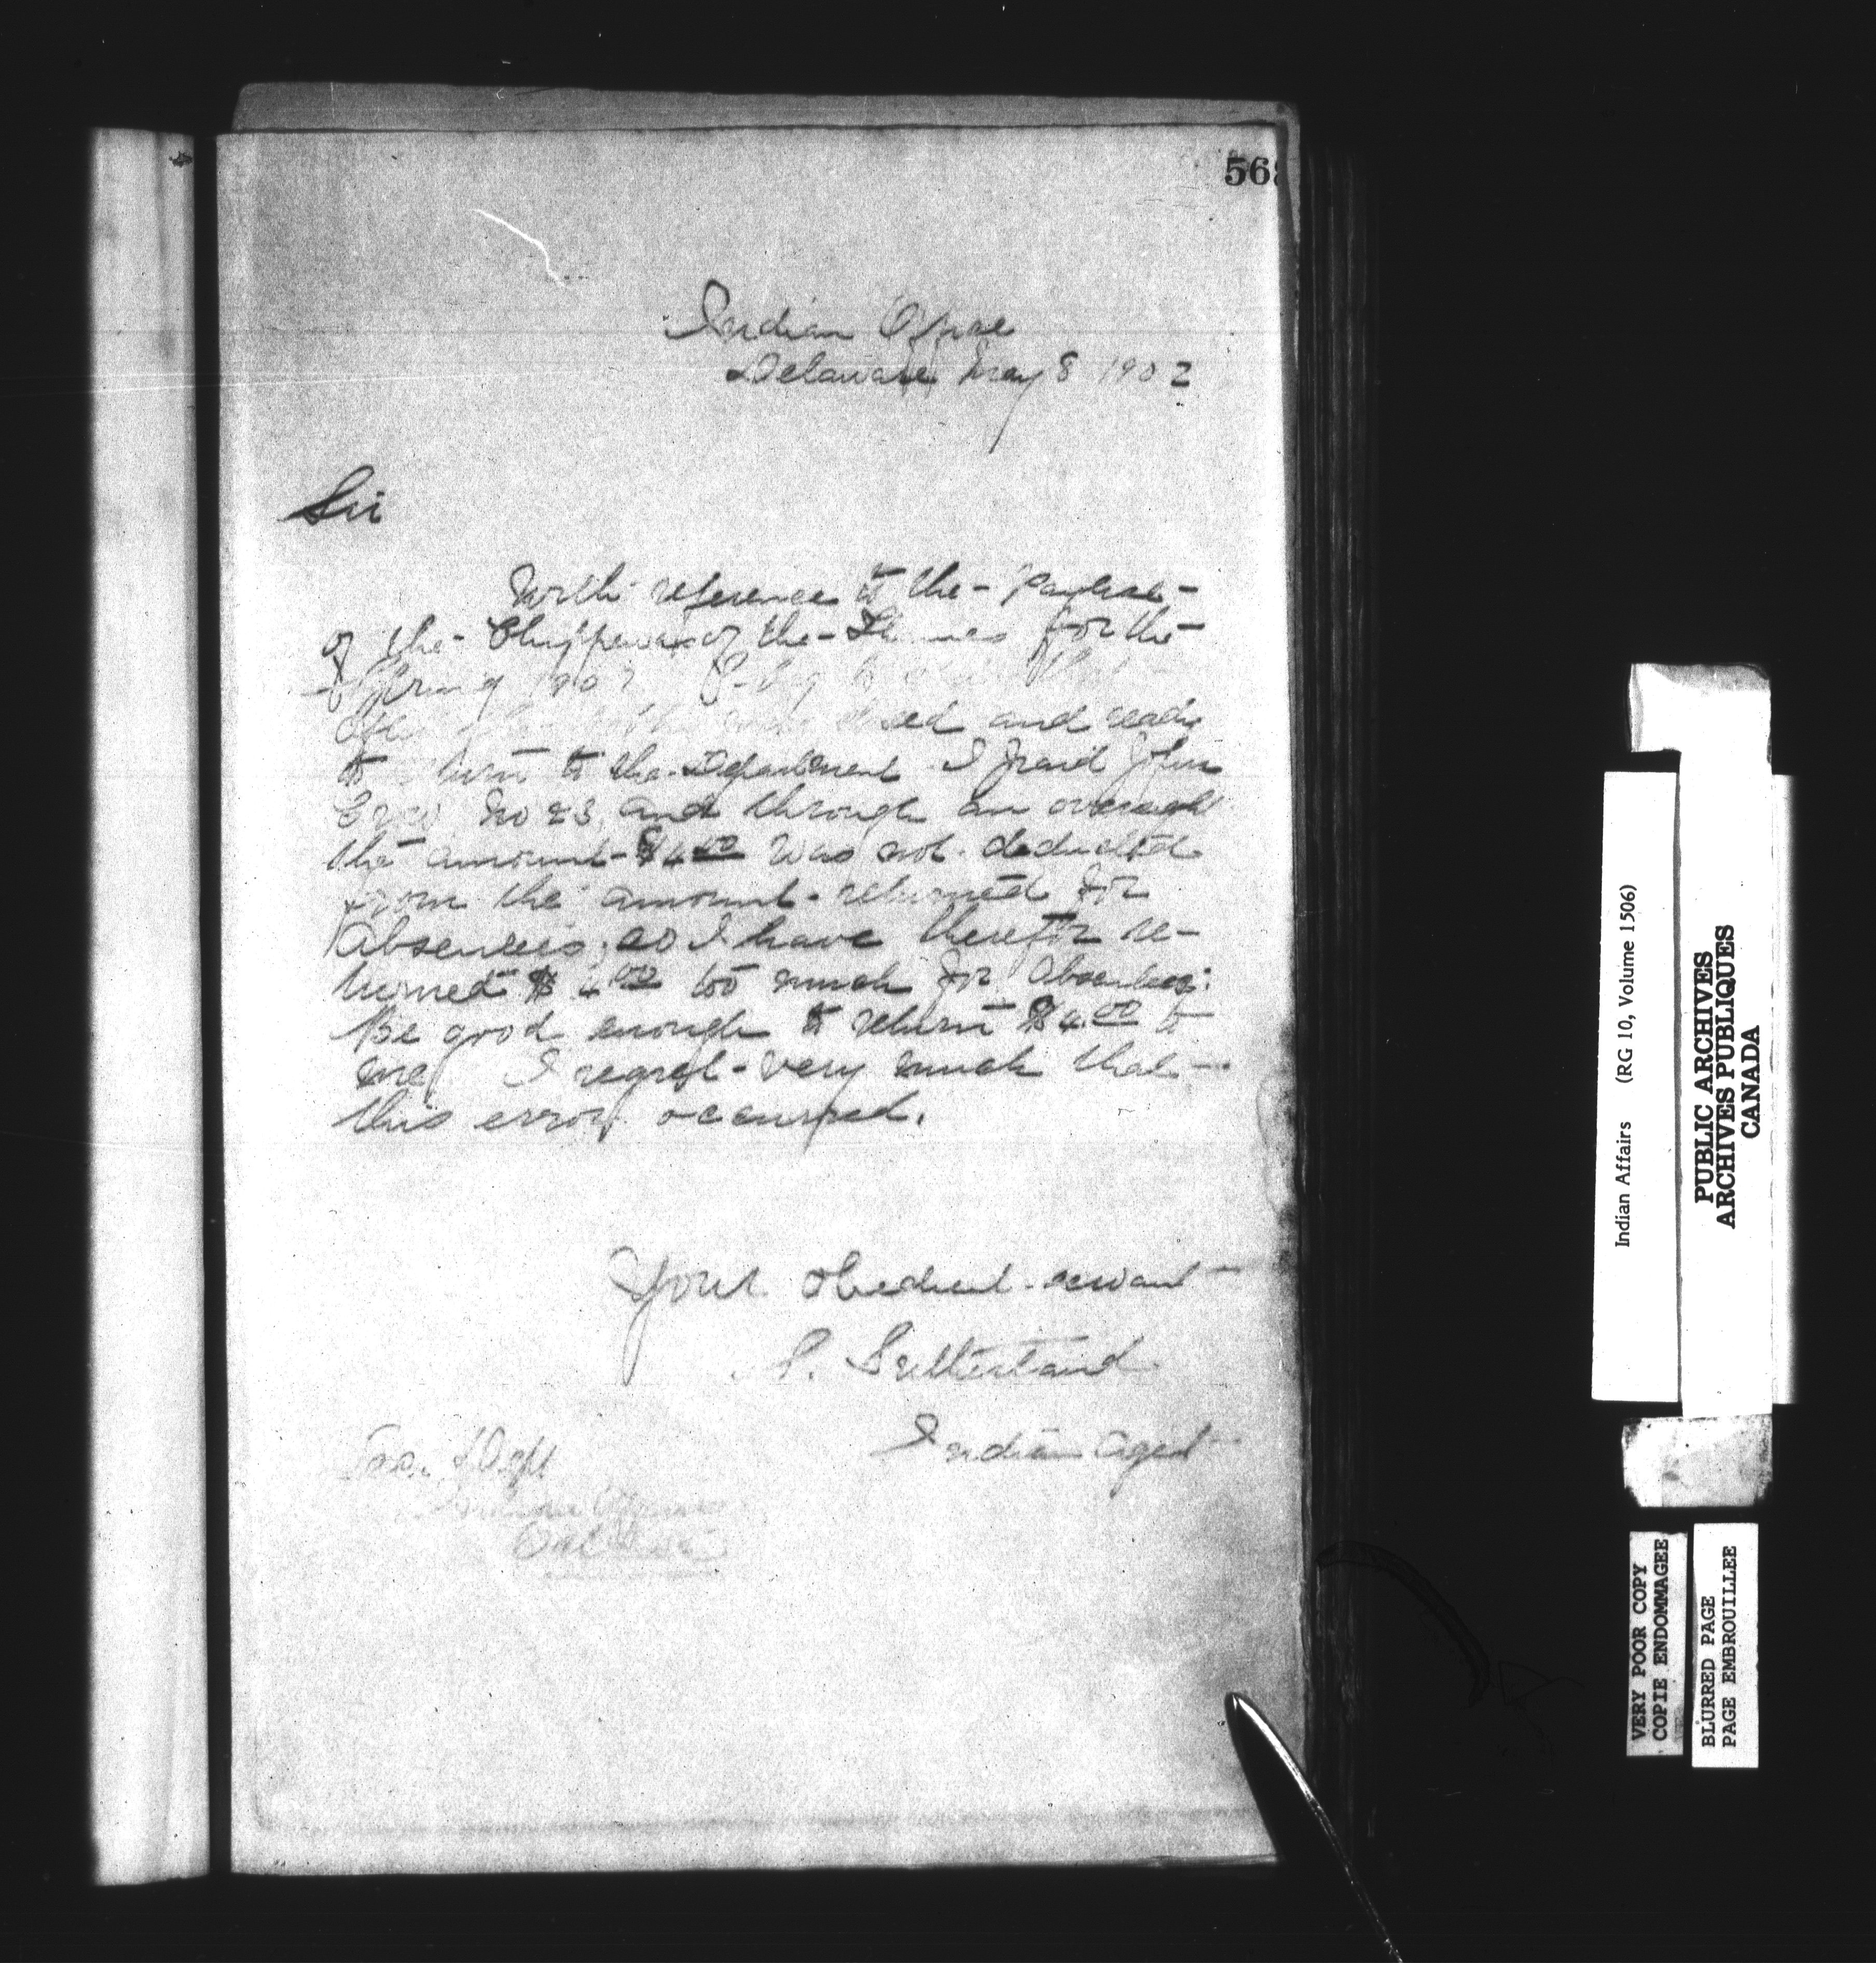 568
Indian Office
Delaware May 8 1902
Sir
With reference to the Paylist
of the Chippewas of the Thames for the
Spring 1902 I beg to that
After closed and ready
to return to the Department I paid John
No 23, and through an oversight
the amount $4.00 was not deducted
from the amount returned for
Absentees; as I have therefor re-
turned $4.00 too much for Absentees:
Be good enough to return $4.00 to
me I regret very much that
this error occurred.
Your obedient servant
S. Sutherland
Indian Agent
Sec. Dept
Indian Affairs
Ottawa
Indian Affairs (RG 10, Volume 1506)
PUBLIC ARCHIVES
ARCHIVES PUBLIQUES
CANADA
VERY POOR COPY
COPIE ENDOMMAGEE
BLURRED PAGE
PAGE EMBROUILLEE